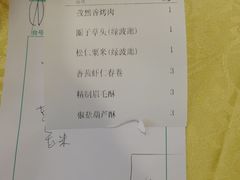 孜然香烤肉 1
圈子草头(绿波廊) 1
松仁粟米(绿波廊) 1
香茜虾仁春卷 3
精制眉毛酥 3
椒盐葫芦酥 3
台号
毛米